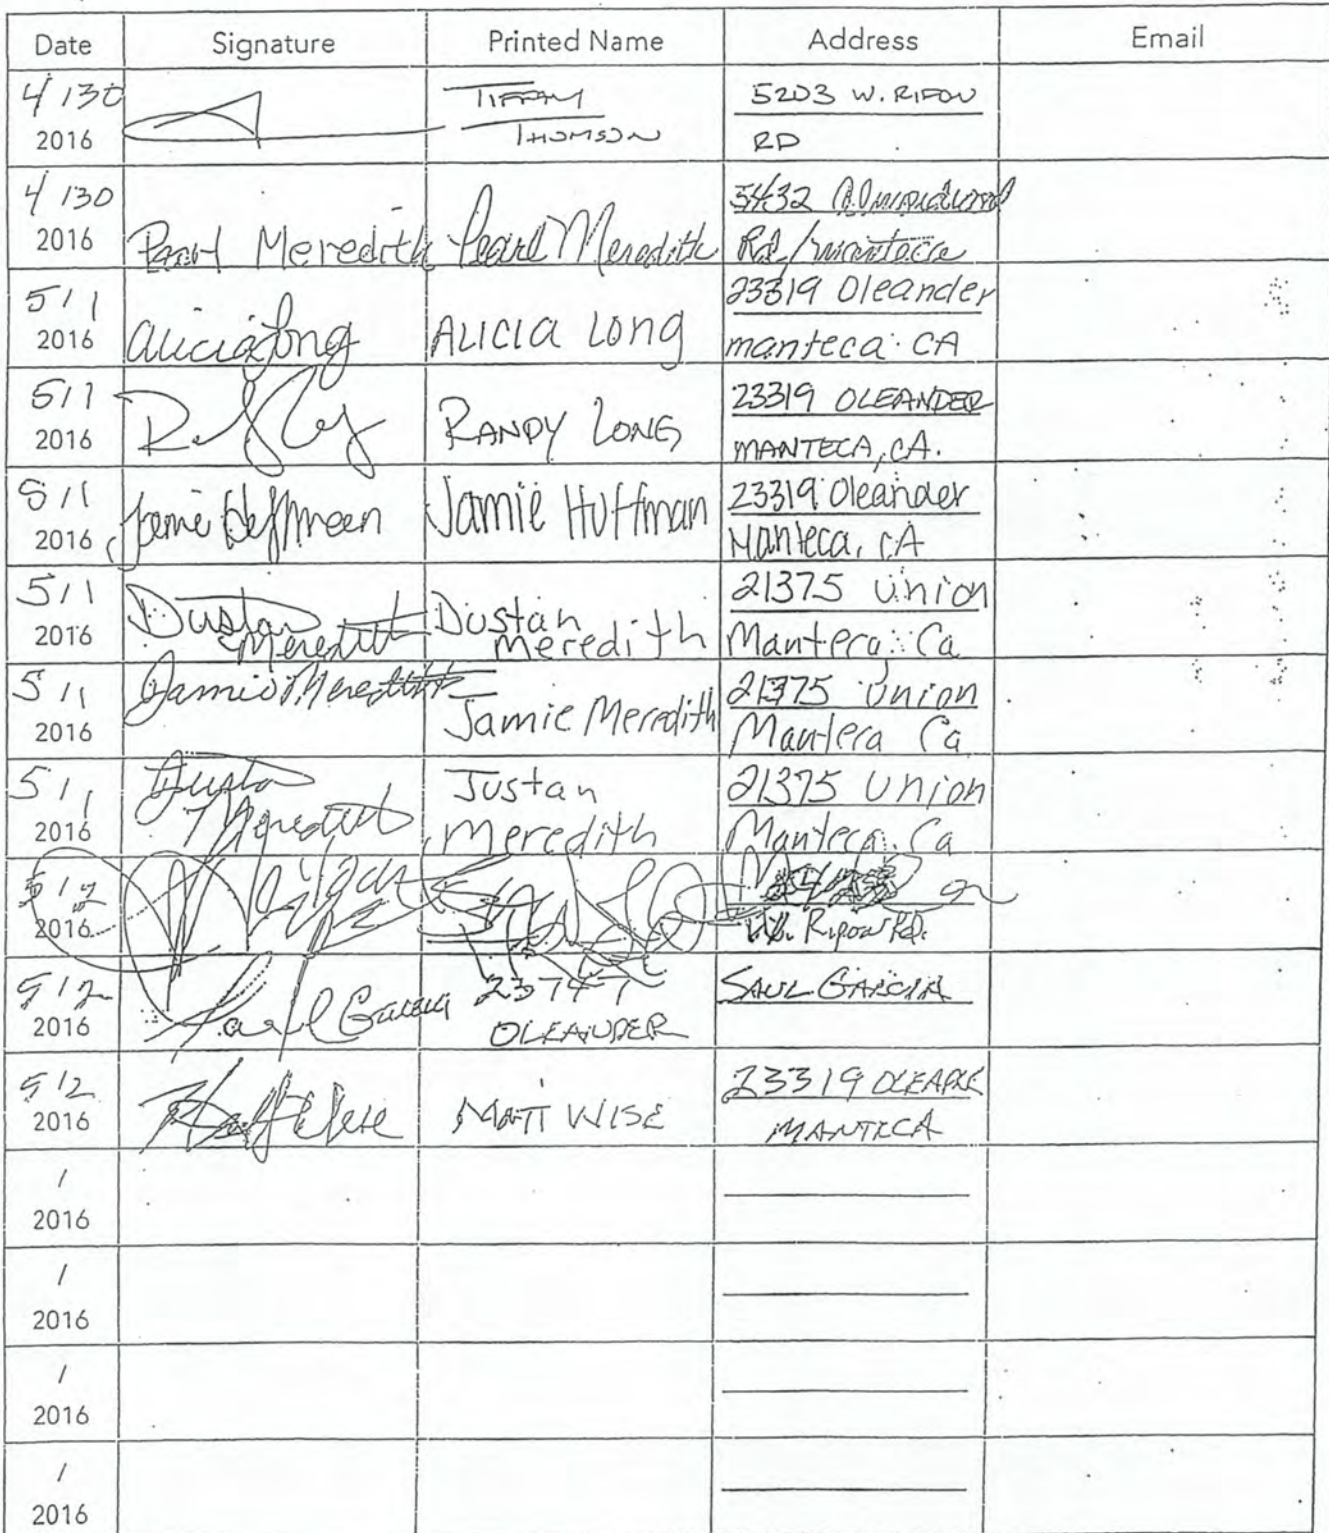 Date Signature Printed Name Address Email
4/30 2016 TIFFANY THOMSON 5203 W. RIPON RD
4/30 2016 Pearl Meredith Pearl Meredith 5432 Rd/manteca
5/1 2016 Alicia Long ALICIA LONG 23319 Oleander manteca CA
5/1 2016 RANDY LONG 23319 OLEANDER MANTECA, CA.
5/1 2016 Jamie Huffman Jamie Huffman 23319 Oleander Manteca, CA
5/1 2016 Dustan Meredith Dustan Meredith 21375 Union Manteca Ca
5/1 2016 Jamie Meredith Jamie Meredith 21375 Union Manteca Ca
5/1 2016 Justan Meredith Justan Meredith 21375 Union Manteca, Ca
5/2 2016 W. Ripon Rd.
5/2 2016 Saul Garcia 23747 OLEANDER SAUL GARCIA
5/2 2016 MATT WISE 23319 MANTECA
/ 2016
/ 2016
/ 2016
/ 2016